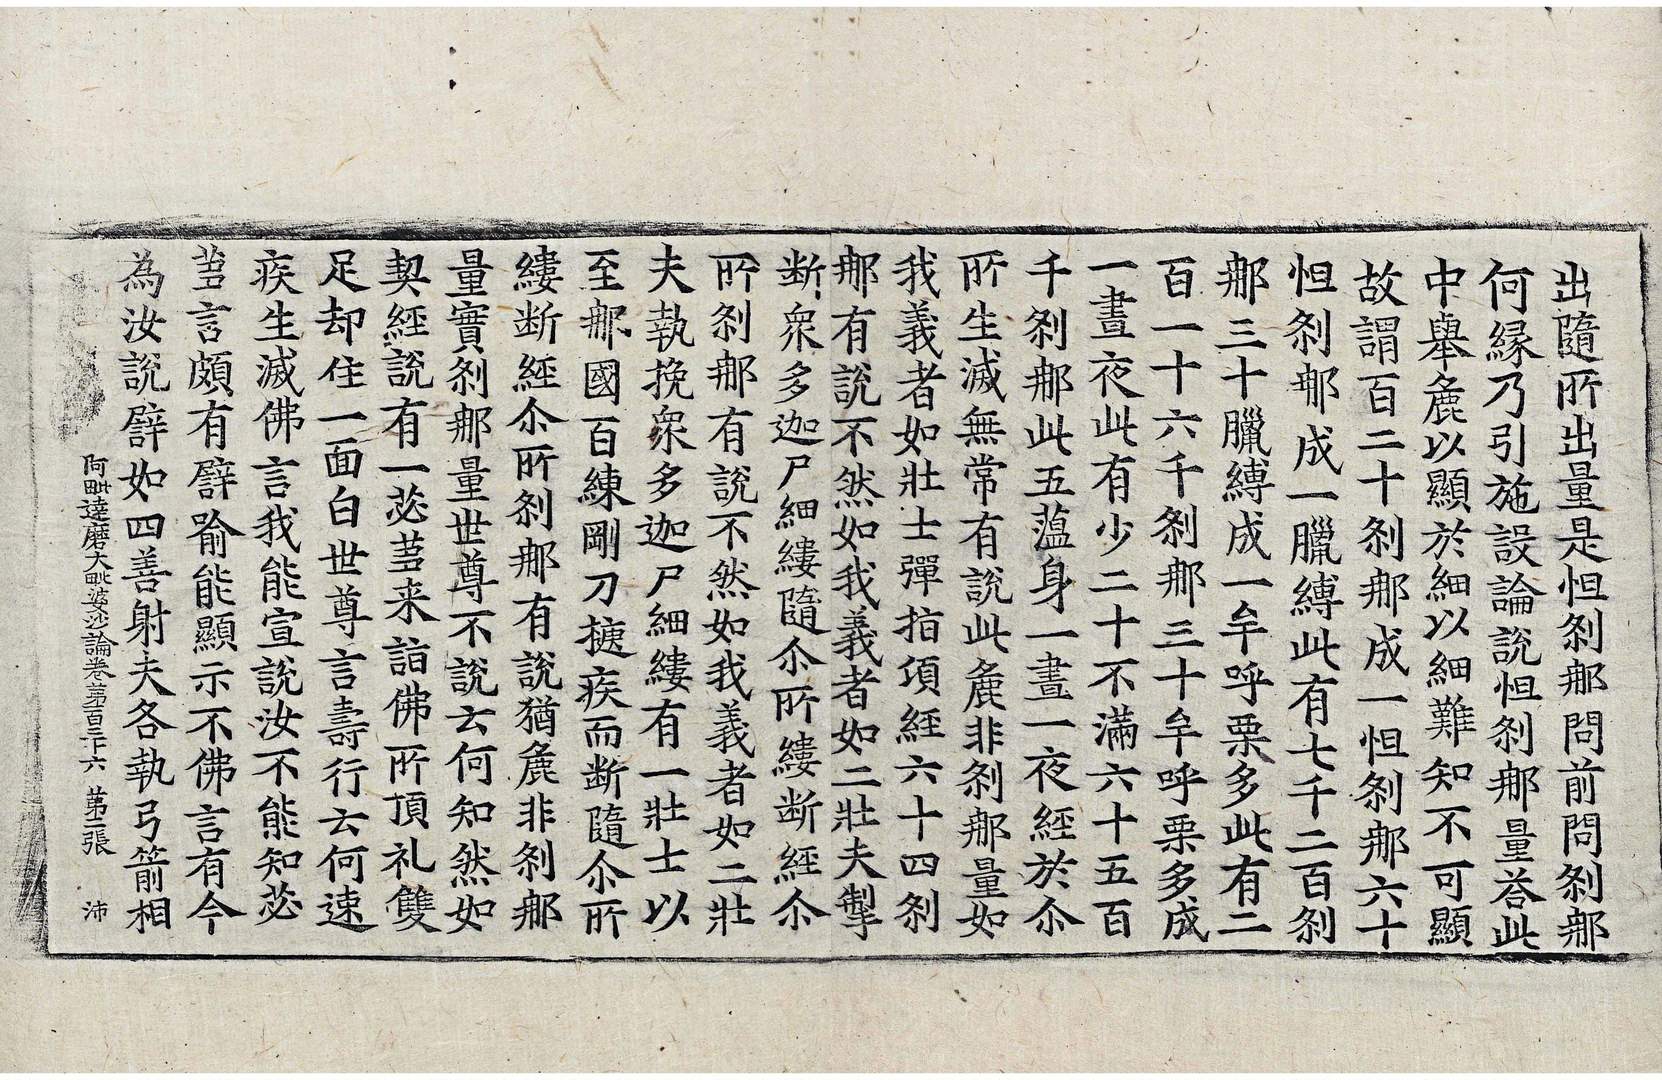 出隨所出量是怛刹那問前問刹那
何縁乃引施設論說怛刹那量荅此
中舉麁以顯於細以細難知不可顯
故謂百二十刹那成一怛刹那六十
怛刹那成一臘縛此有七千二百刹
那三十臘縛成一牟呼栗多此有二
百一十六千刹那三十牟呼栗多成
一晝夜此有少二十不滿六十五百
千刹那此五蕰身一晝一夜經於尒
所生滅無常有說此麁非刹那量如
我義者如壯士彈指頃經六十四刹
那有說不然如我義者如二壯夫掣
断衆多迦尸細縷隨尒所縷断經尒
所刹那有說不然如我義者如二壯
夫執挽衆多迦尸細縷有一壯士以
至那國百練剛刀㨗疾而断隨尒所
縷断經尒所刹那有說猶麁非刹那
量實刹那量世尊不說云何知然如
契經說有一苾蒭来詣佛所頂礼雙
足却住一面白世尊言壽行云何速
疾生滅佛言我能宣說汝不能知苾
蒭言頗有譬喻能顯示不佛言有今
為汝說譬如四善射夫各執弓箭相
阿毗達磨大毗婆沙論卷苐百三十六 苐二張 沛